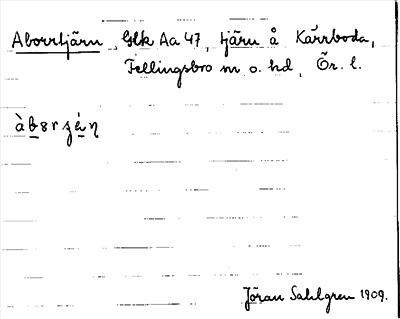 Aborrtjärn Glk Aa 47, tjärn å Kärrboda,
Fellingsbro sn o. hd, Ör. l.
Jöran Sahlgren 1909.